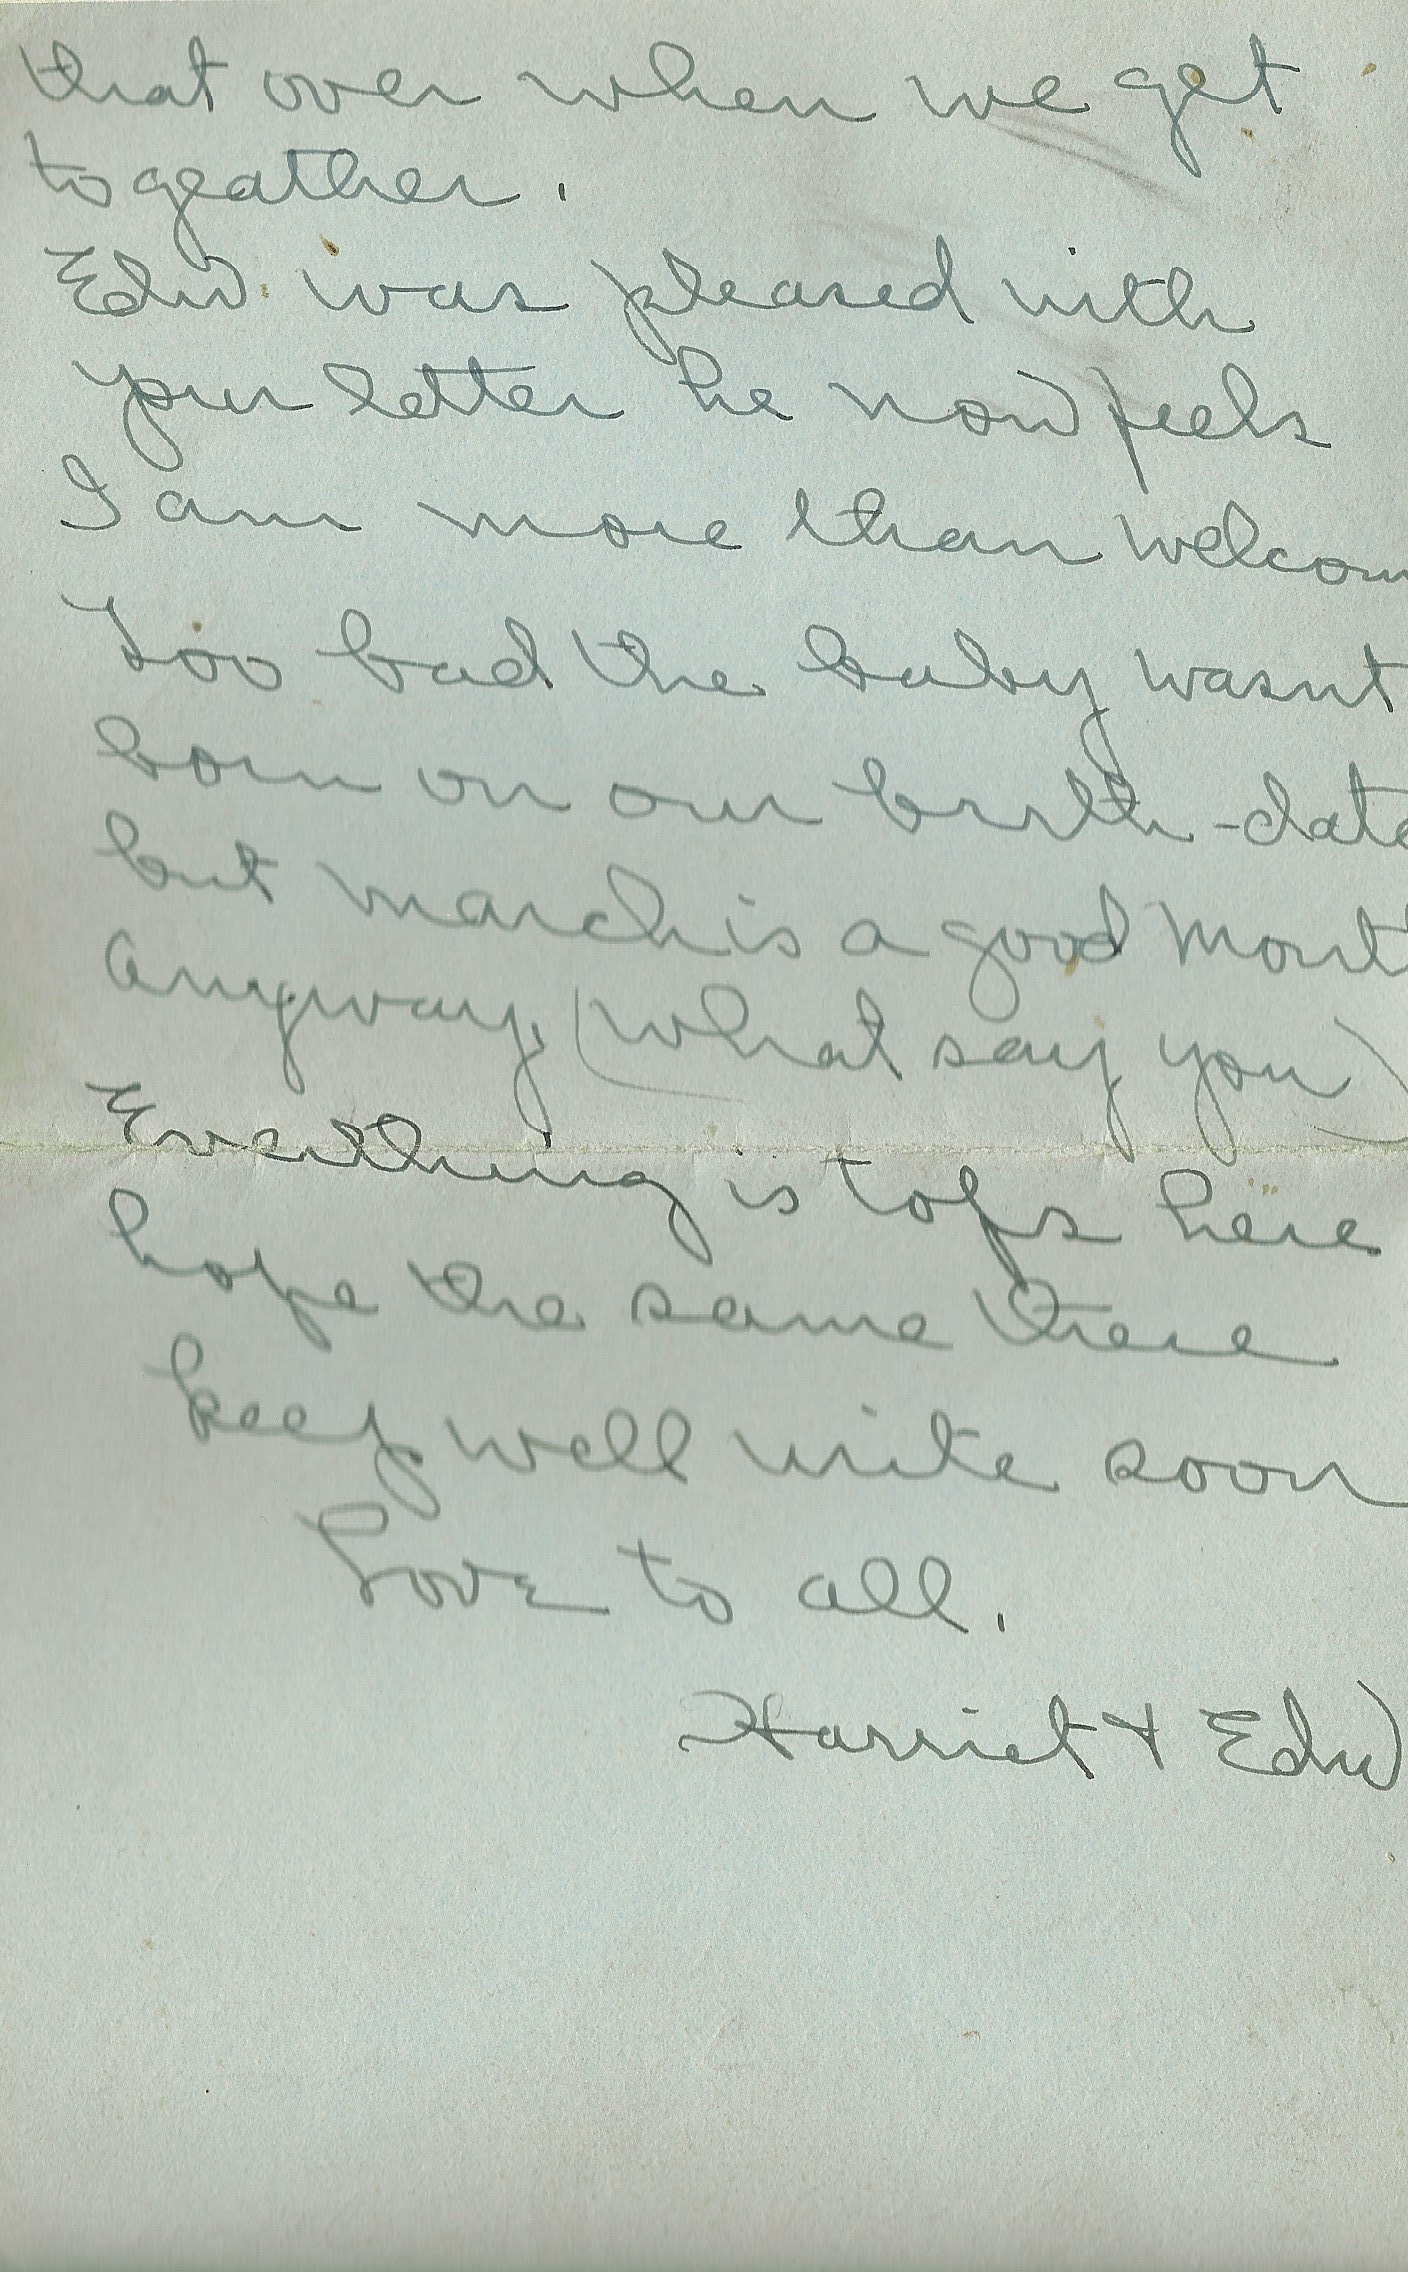 that over when we get
togeather.
Edw. was pleased with
your letter he now feels
I am more than welcom
Too bad the baby wasnt
born on our birth-date
but march is a good mont
anyway, (what say you)
Everthing is tops here
hope the same there
keep well write soon
Love to all.
Harriet + Edw